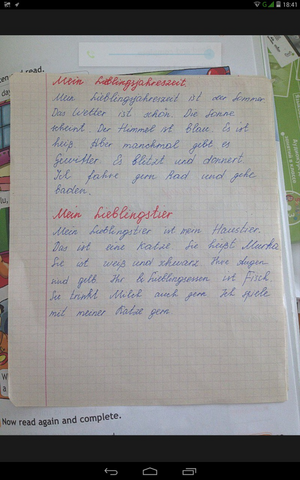 18:41
Mein Lieblingsjahreszeit
Mein Lieblingsjahreszeit ist der Sommer
Das Wetter ist schön. Die Sonne
scheint. Der Himmel ist blau. Es ist
heiß. Aber manchmal gibt es
Gewitter. Es blitzt und donnert.
Ich fahre gern Rad und gehe
baden.
Mein Lieblingstier
Mein Lieblingstier ist mein Haustier.
Das ist eine Katze. Sie heißt Murka
Sie ist weiß und schwarz. Ihre Augen
sind gelb. Ihr Lieblingsessen ist Fisch.
Sie trinkt Milch auch gern. Ich spiele
mit meiner Katze gern
Now read again and complete.